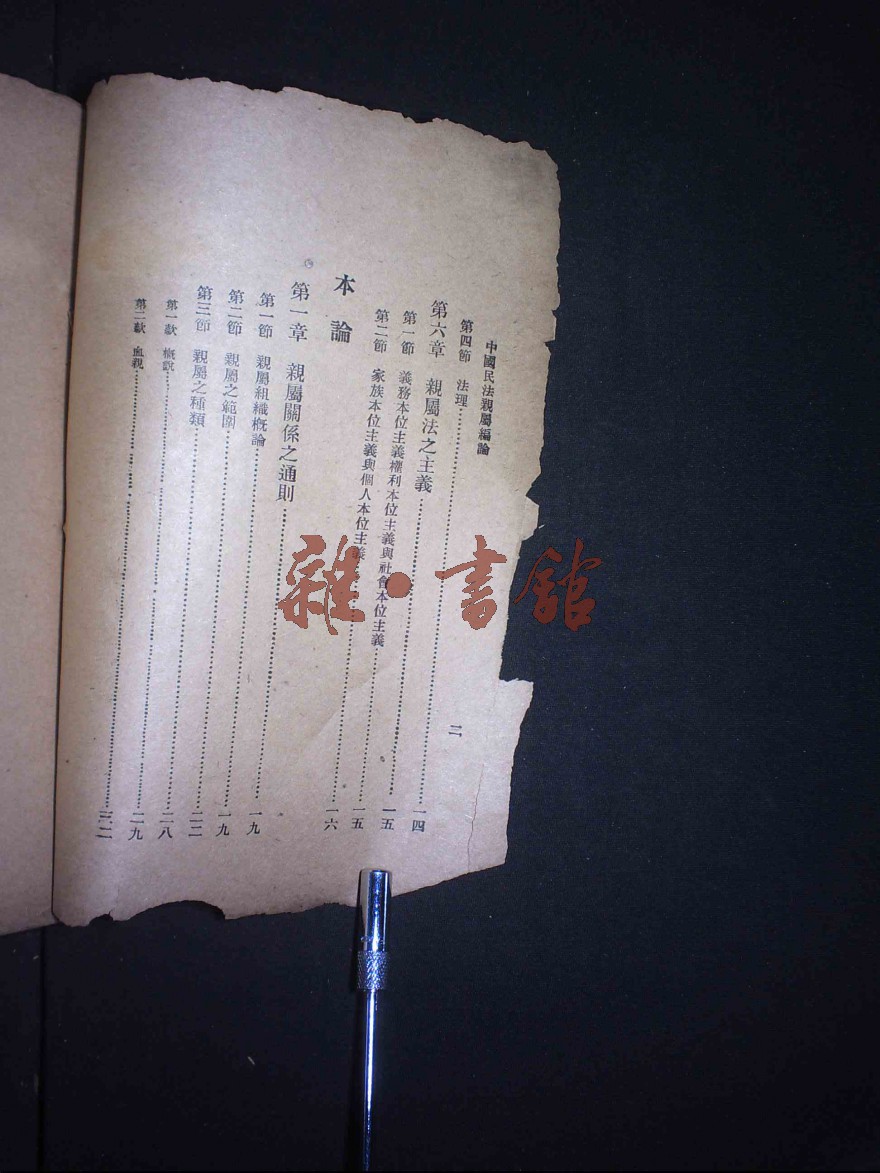 中國民法親屬編論
二
第四節 法理……一四
第六章 親屬法之主義……一五
第一節 義務本位主義權利本位主義與社會本位主義……一五
第二節 家族本位主義與個人本位主義……一六
本論
第一章 親屬關係之通則……一九
第一節 親屬組織概論……一九
第二節 親屬之範圍……二二
第三節 親屬之種類……二八
第一款 概說……二九
第二款 血親……三二
雜·書館